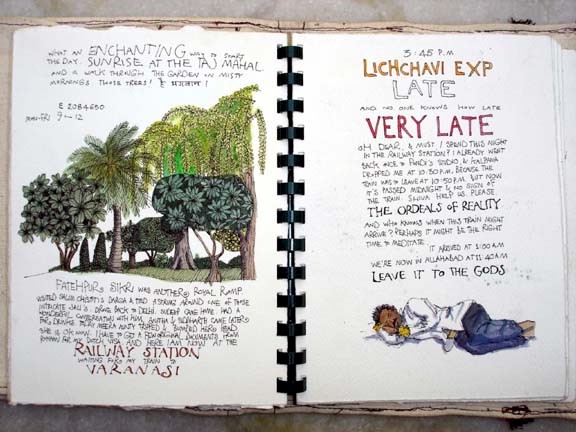 WHAT AN ENCHANTING WAY TO START
THE DAY. SUNRISE AT THE TAJ MAHAL
AND A WALK THROUGH THE GARDEN ON MISTY
MORNINGS THOSE TREES!
E 2084680
MON-FRI 9-12
FATEHPUR SIKRI WAS ANOTHER ROYAL ROMP.
VISITED SALIM CHISHTI'S DARGA & TIED A STRING AROUND ONE OF THOSE
INTRICATE JALI'S. DROVE BACK TO DELHI.
WONDERFUL CONVERSATION WITH HIM. CAME LATER
FOR DRINKS. AUNTY TRIPPED & BUMPED HERO HEAD
SHE IS OK NOW. I HAVE TO GET 2 DOCUMENTS FROM
FOR MY DUTCH VISA AND HERE I AM NOW AT THE
RAILWAY STATION
WAITING FOR MY TRAIN TO
VARANASI
3:45 P.M
LICHCHAVI EXP
LATE
AND NO ONE KNOWS HOW LATE
VERY LATE
OH DEAR, & MUST I SPEND THIS NIGHT
IN THE RAILWAY STATION? I ALREADY WENT
BACK ONCE TO STUDIO, & KALPANA
DROPPED ME AT 10:30 P.M. BECAUSE THE
TRAIN WAS TO LEAVE AT 10:50 P.M. BUT NOW
IT'S PASSED MIDNIGHT & NO SIGN OF
THE TRAIN. SHIVA HELP US. PLEASE.
THE ORDEALS OF REALITY
AND WHO KNOWS WHEN THIS TRAIN MIGHT
ARRIVE? PERHAPS IT MIGHT BE THE RIGHT
TIME TO MEDITATE.
IT ARRIVED AT 1:00 A.M
WE'RE NOW IN ALLAHABAD AT 11:40 AM
LEAVE IT TO THE GODS